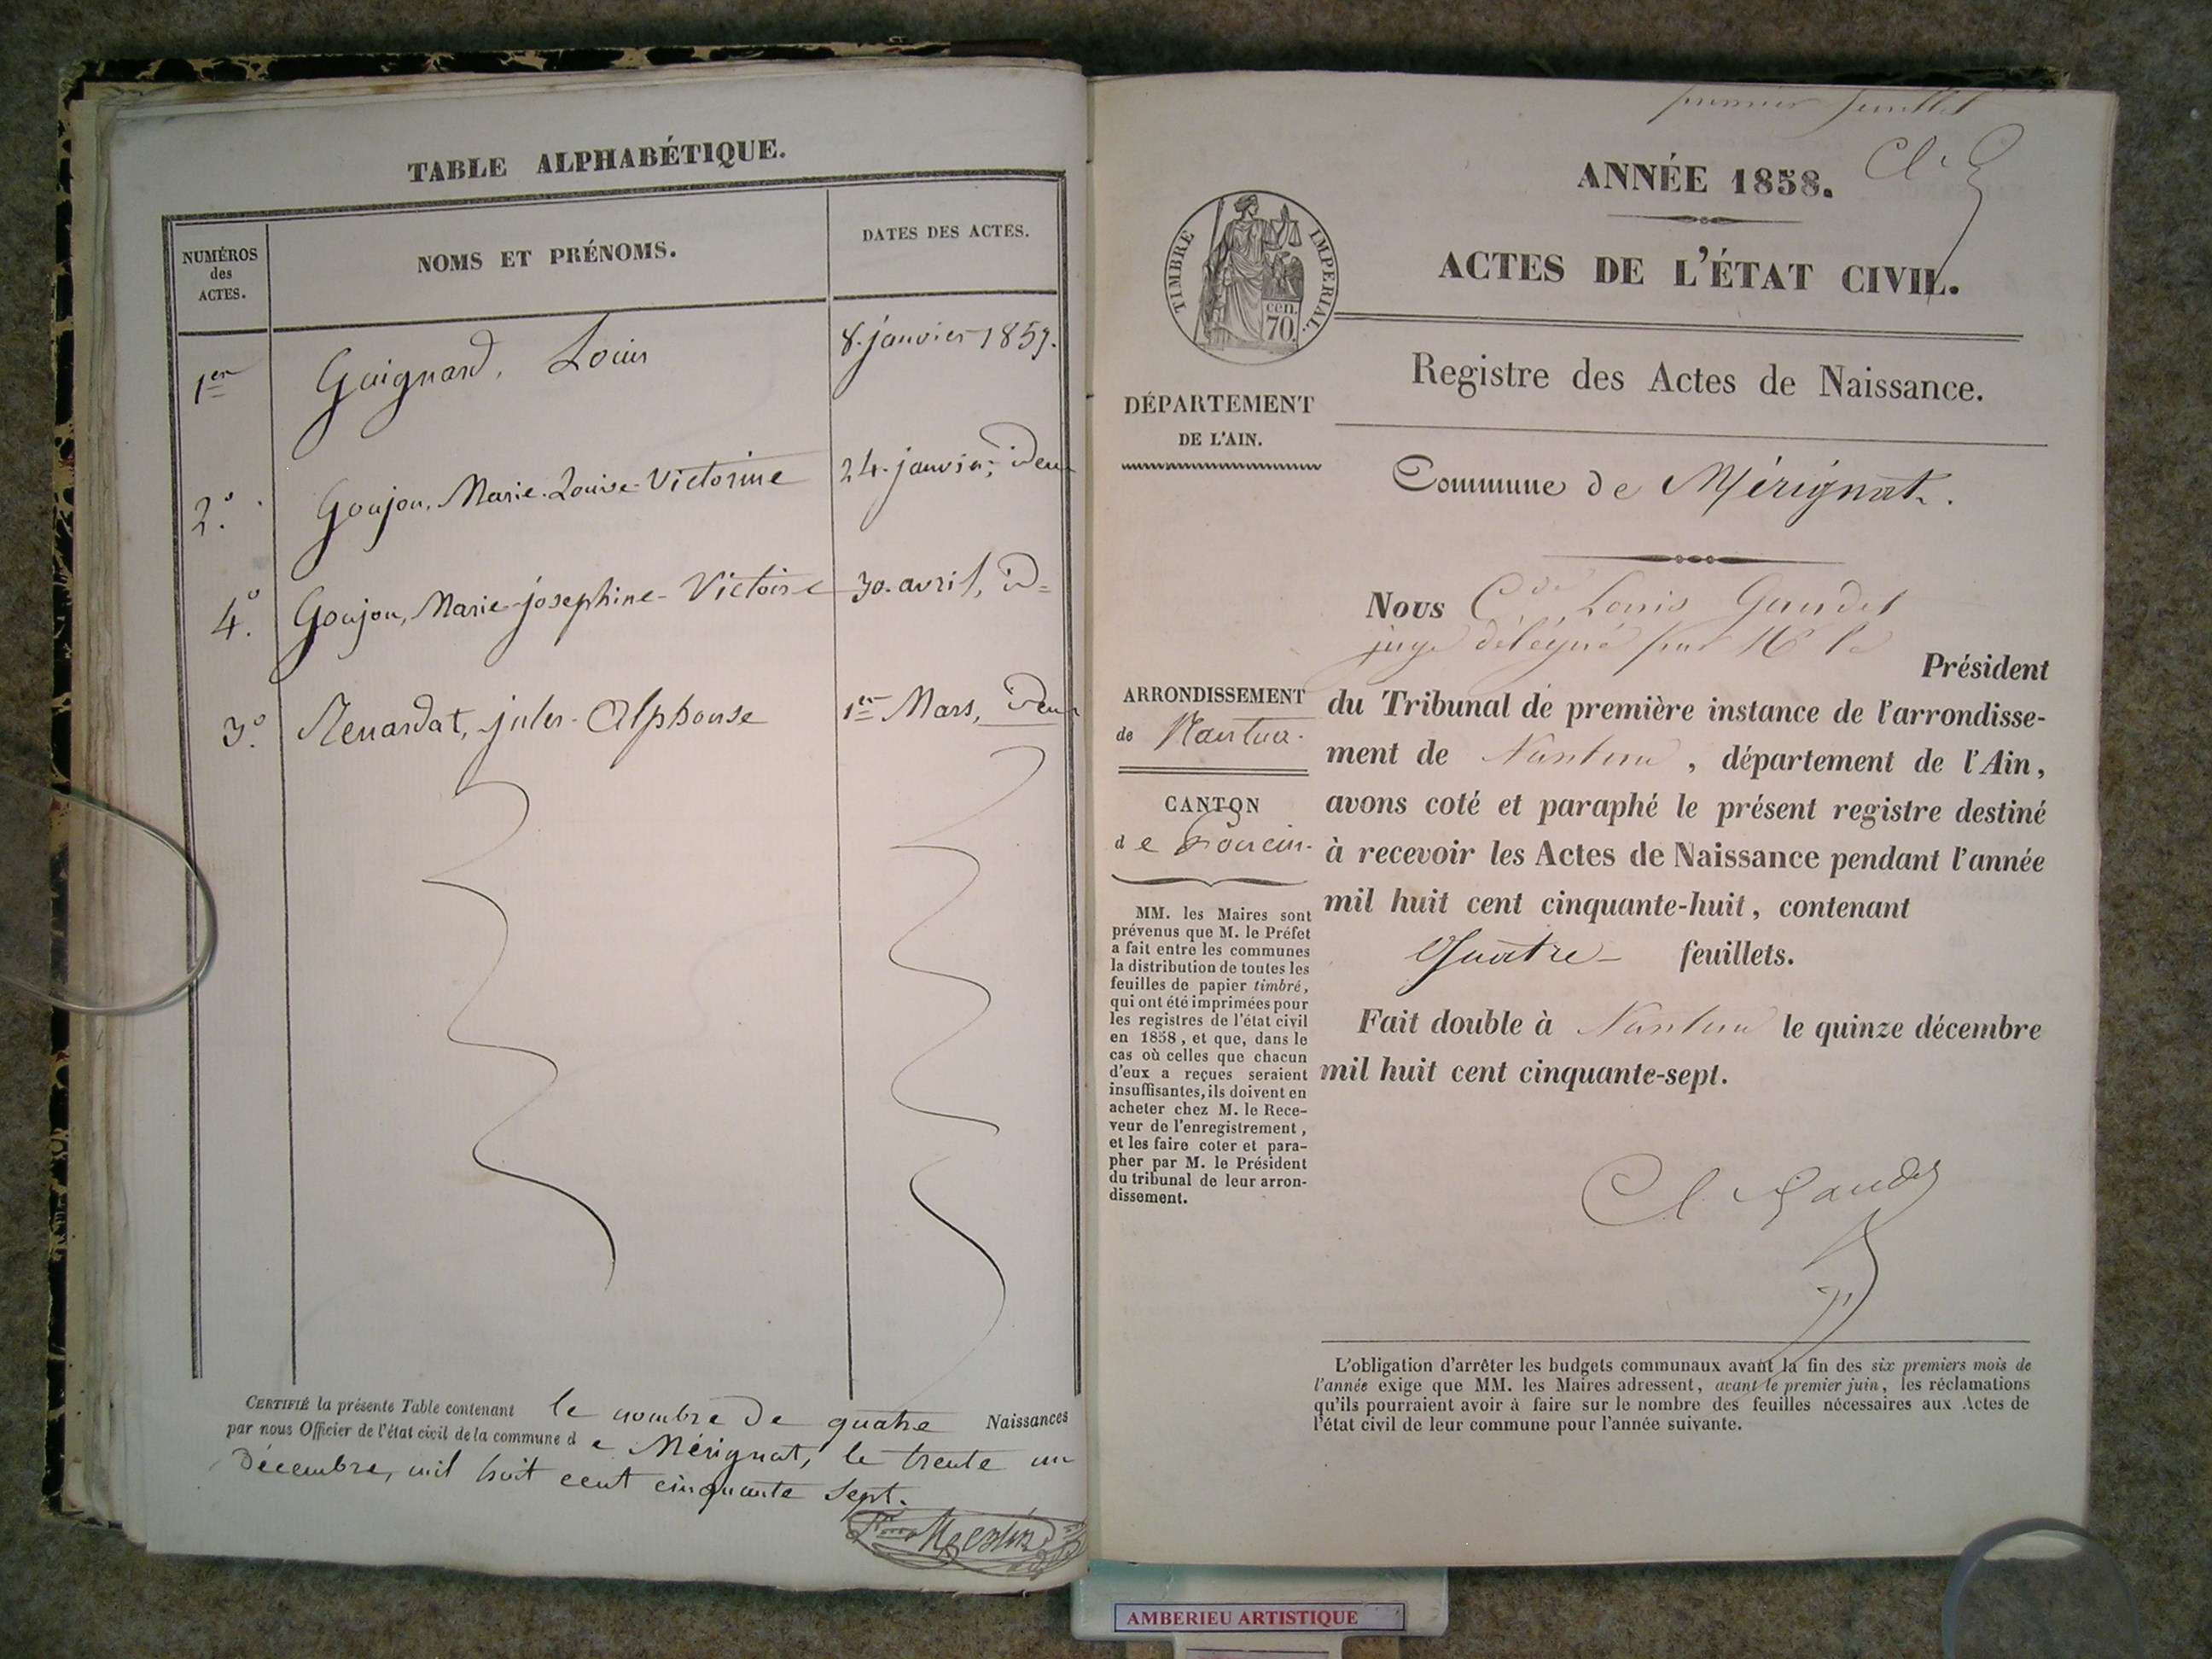 TABLE ALPHABÉTIQUE.
NUMÉROS
des
ACTES.
NOMS ET PRÉNOMS.
DATES DES ACTES.
1er Guignard, Louis 8. janvier 1857.
2.° Goujon, Marie-Louise-Victorine 24. janvier, idem
4.° Goujon, Marie-josephine-Victoire 30. avril, id=
3.° Renardat, jules-Alphonse 1er Mars, idem
CERTIFIÉ la présente Table contenant le nombre de quatre Naissances
par nous Officier de l'état civil de la commune de Mérignat, le trente un
Décembre, mil huit cent cinquante sept.
premier feuillet
ANNÉE 1858.
TIMBRE IMPERIAL.
cen.
70.
ACTES DE L'ÉTAT CIVIL.
Registre des Actes de Naissance.
DÉPARTEMENT
DE L'AIN.
Commune de Mérignat.
Nous Cde Louis Gaudet
juge délégué par Mr le
Président
du Tribunal de première instance de l'arrondisse-
ment de Nantua, département de l'Ain,
avons coté et paraphé le présent registre destiné
à recevoir les Actes de Naissance pendant l'année
mil huit cent cinquante-huit, contenant
Quatre feuillets.
Fait double à Nantua le quinze décembre
mil huit cent cinquante-sept.
Cl. Gaudet
ARRONDISSEMENT
de Nantua.
CANTON
de Poncin.
MM. les Maires sont
prévenus que M. le Préfet
a fait entre les communes
la distribution de toutes les
feuilles de papier timbré,
qui ont été imprimées pour
les registres de l'état civil
en 1858, et que, dans le
cas où celles que chacun
d'eux a reçues seraient
insuffisantes, ils doivent en
acheter chez M. le Rece-
veur de l'enregistrement,
et les faire coter et para-
pher par M. le Président
du tribunal de leur arron-
dissement.
L'obligation d'arrêter les budgets communaux avant la fin des six premiers mois de
l'année exige que MM. les Maires adressent, avant le premier juin, les réclamations
qu'ils pourraient avoir à faire sur le nombre des feuilles nécessaires aux Actes de
l'état civil de leur commune pour l'année suivante.
AMBERIEU ARTISTIQUE